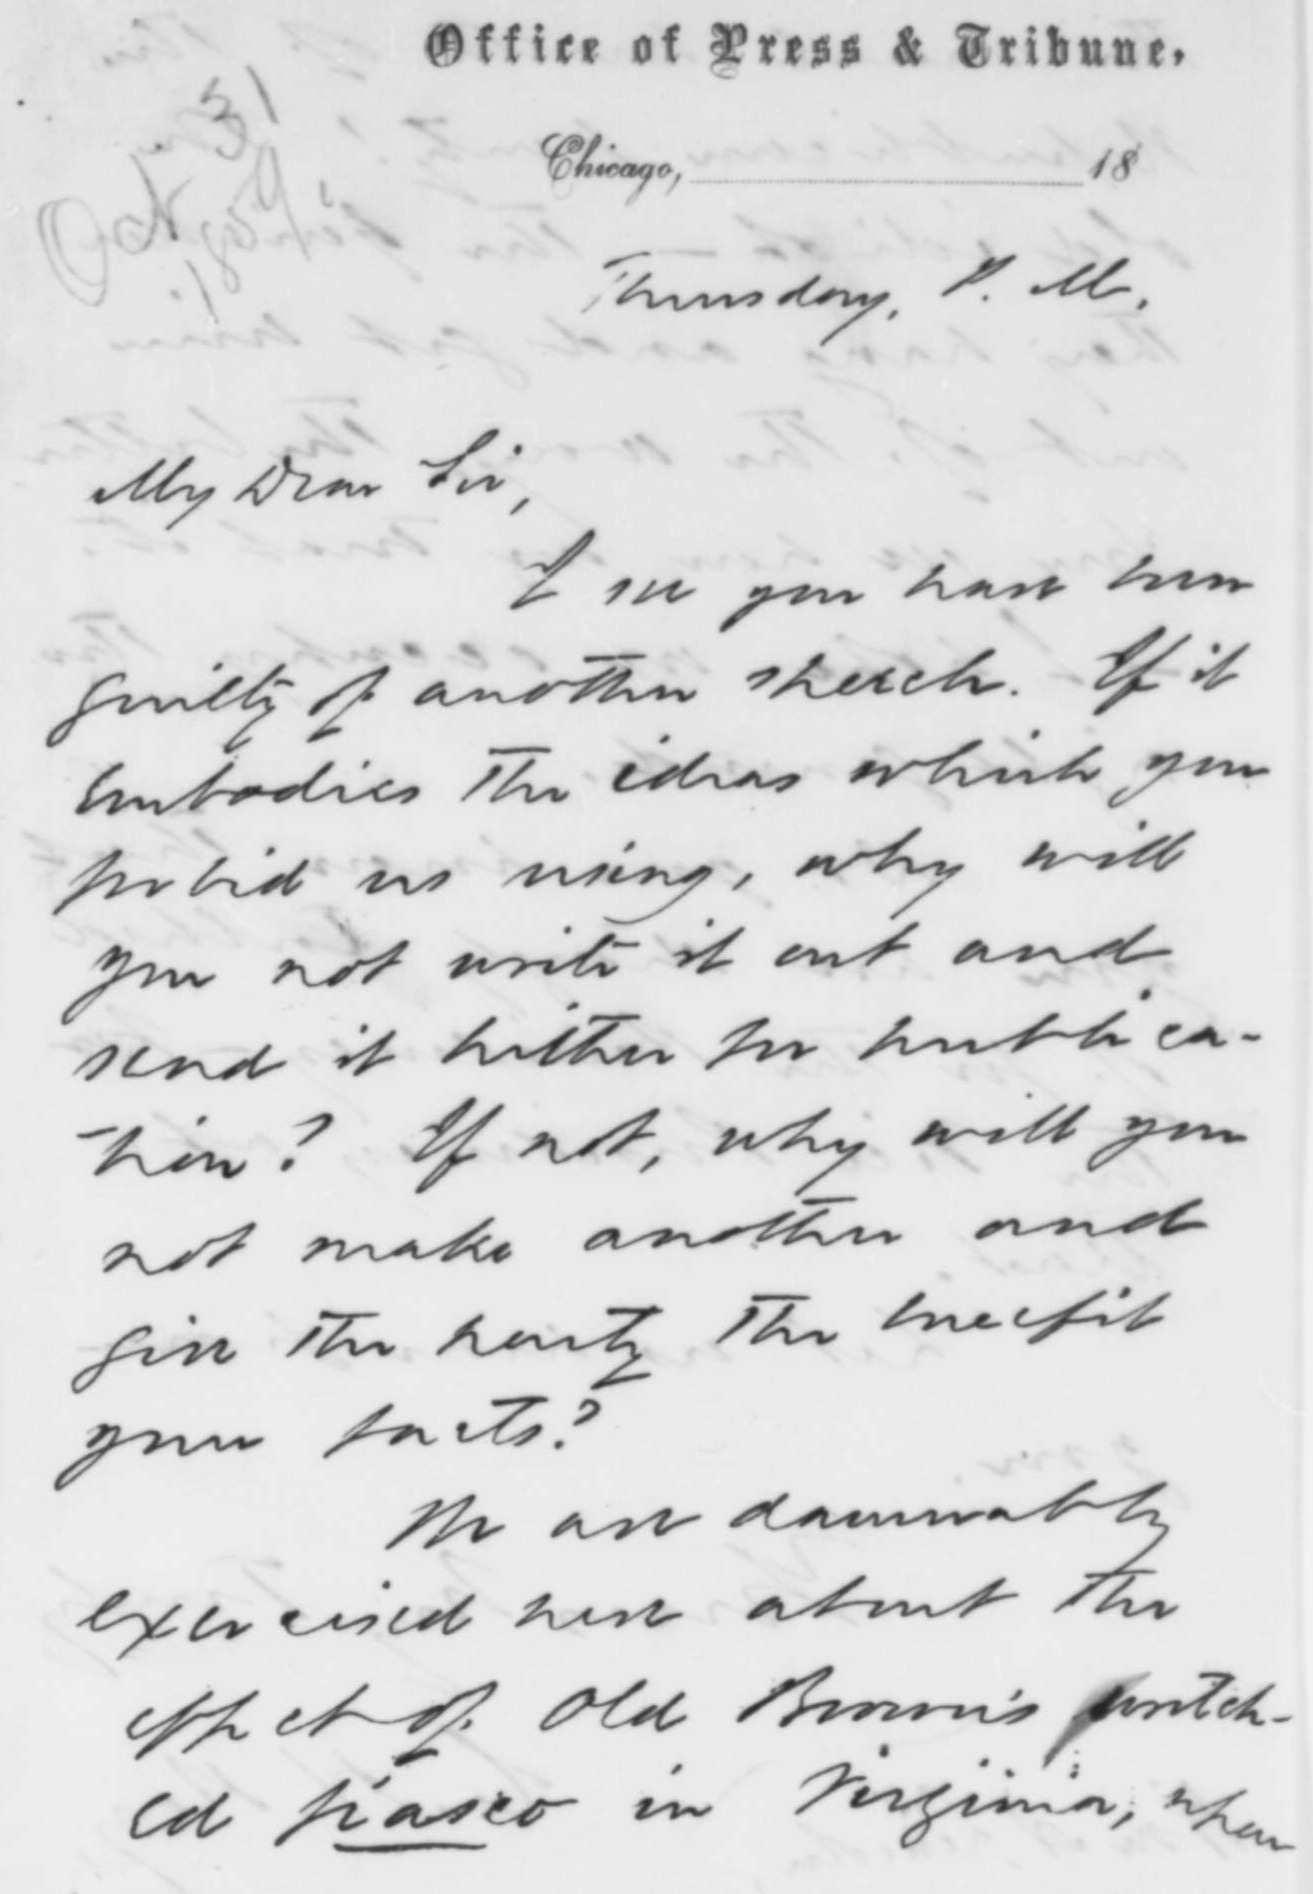 Office of Press & Tribune.
Chicago, 18
Thursday, P. M.
My Dear Sir,
I see you have been
guilty of another speech. If it
embodies the ideas which you
forbid us using, why will
you not write it out and
send it hither for publica-
tion? If not, why will you
not make another and
give the party the benefit
your facts?
We are damnably
exercised here about the
effect of Old Brown's wretch-
ed fiasco in Virginia, upon